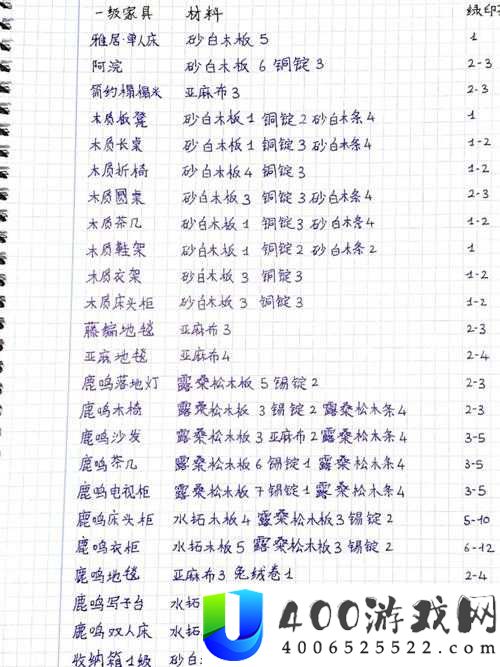 一级家具 材料 绿印
雅居·单人床 砂白木板5 1
阿浣 砂白木板 6 铜锭 3 2-3
简约榻榻米 亚麻布3 2-3
木质板凳 砂白木板1 铜锭2 砂白木条4 1
木质长桌 砂白木板1 铜锭3 砂白木条4 1-2
木质折椅 砂白木板4 铜锭3 1-2
木质圆桌 砂白木板3 铜锭3 砂白木条4 2-3
木质茶几 砂白木板1 铜锭3 砂白木条4 1-2
木质鞋架 砂白木板1 铜锭2 砂白木条2 1
木质衣架 砂白木板3 铜锭3 1-2
木质床头柜 砂白木板3 铜锭3 1-2
藤编地毯 亚麻布3 2-3
亚麻地毯 亚麻布4 2-4
鹿鸣落地灯 露桑松木板5 锡锭2 2-3
鹿鸣木椅 露桑松木板3 锡锭2 露桑松木条4 2-3
鹿鸣沙发 露桑松木板3 亚麻布2 露桑松木条4 3-5
鹿鸣茶几 露桑松木板6 锡锭1 露桑松木条4 3-5
鹿鸣电视柜 露桑松木板7 锡锭1 露桑松木条4 3-5
鹿鸣床头柜 水拓木板4 露桑松木板3 锡锭2 5-10
鹿鸣衣柜 水拓木板5 露桑松木板3 锡锭2 6-12
鹿鸣地毯 亚麻布3 兔绒卷1 2-4
鹿鸣写字台 水拓
鹿鸣双人床 水拓
收纳箱1级 砂白
400游戏网
4006525522.com